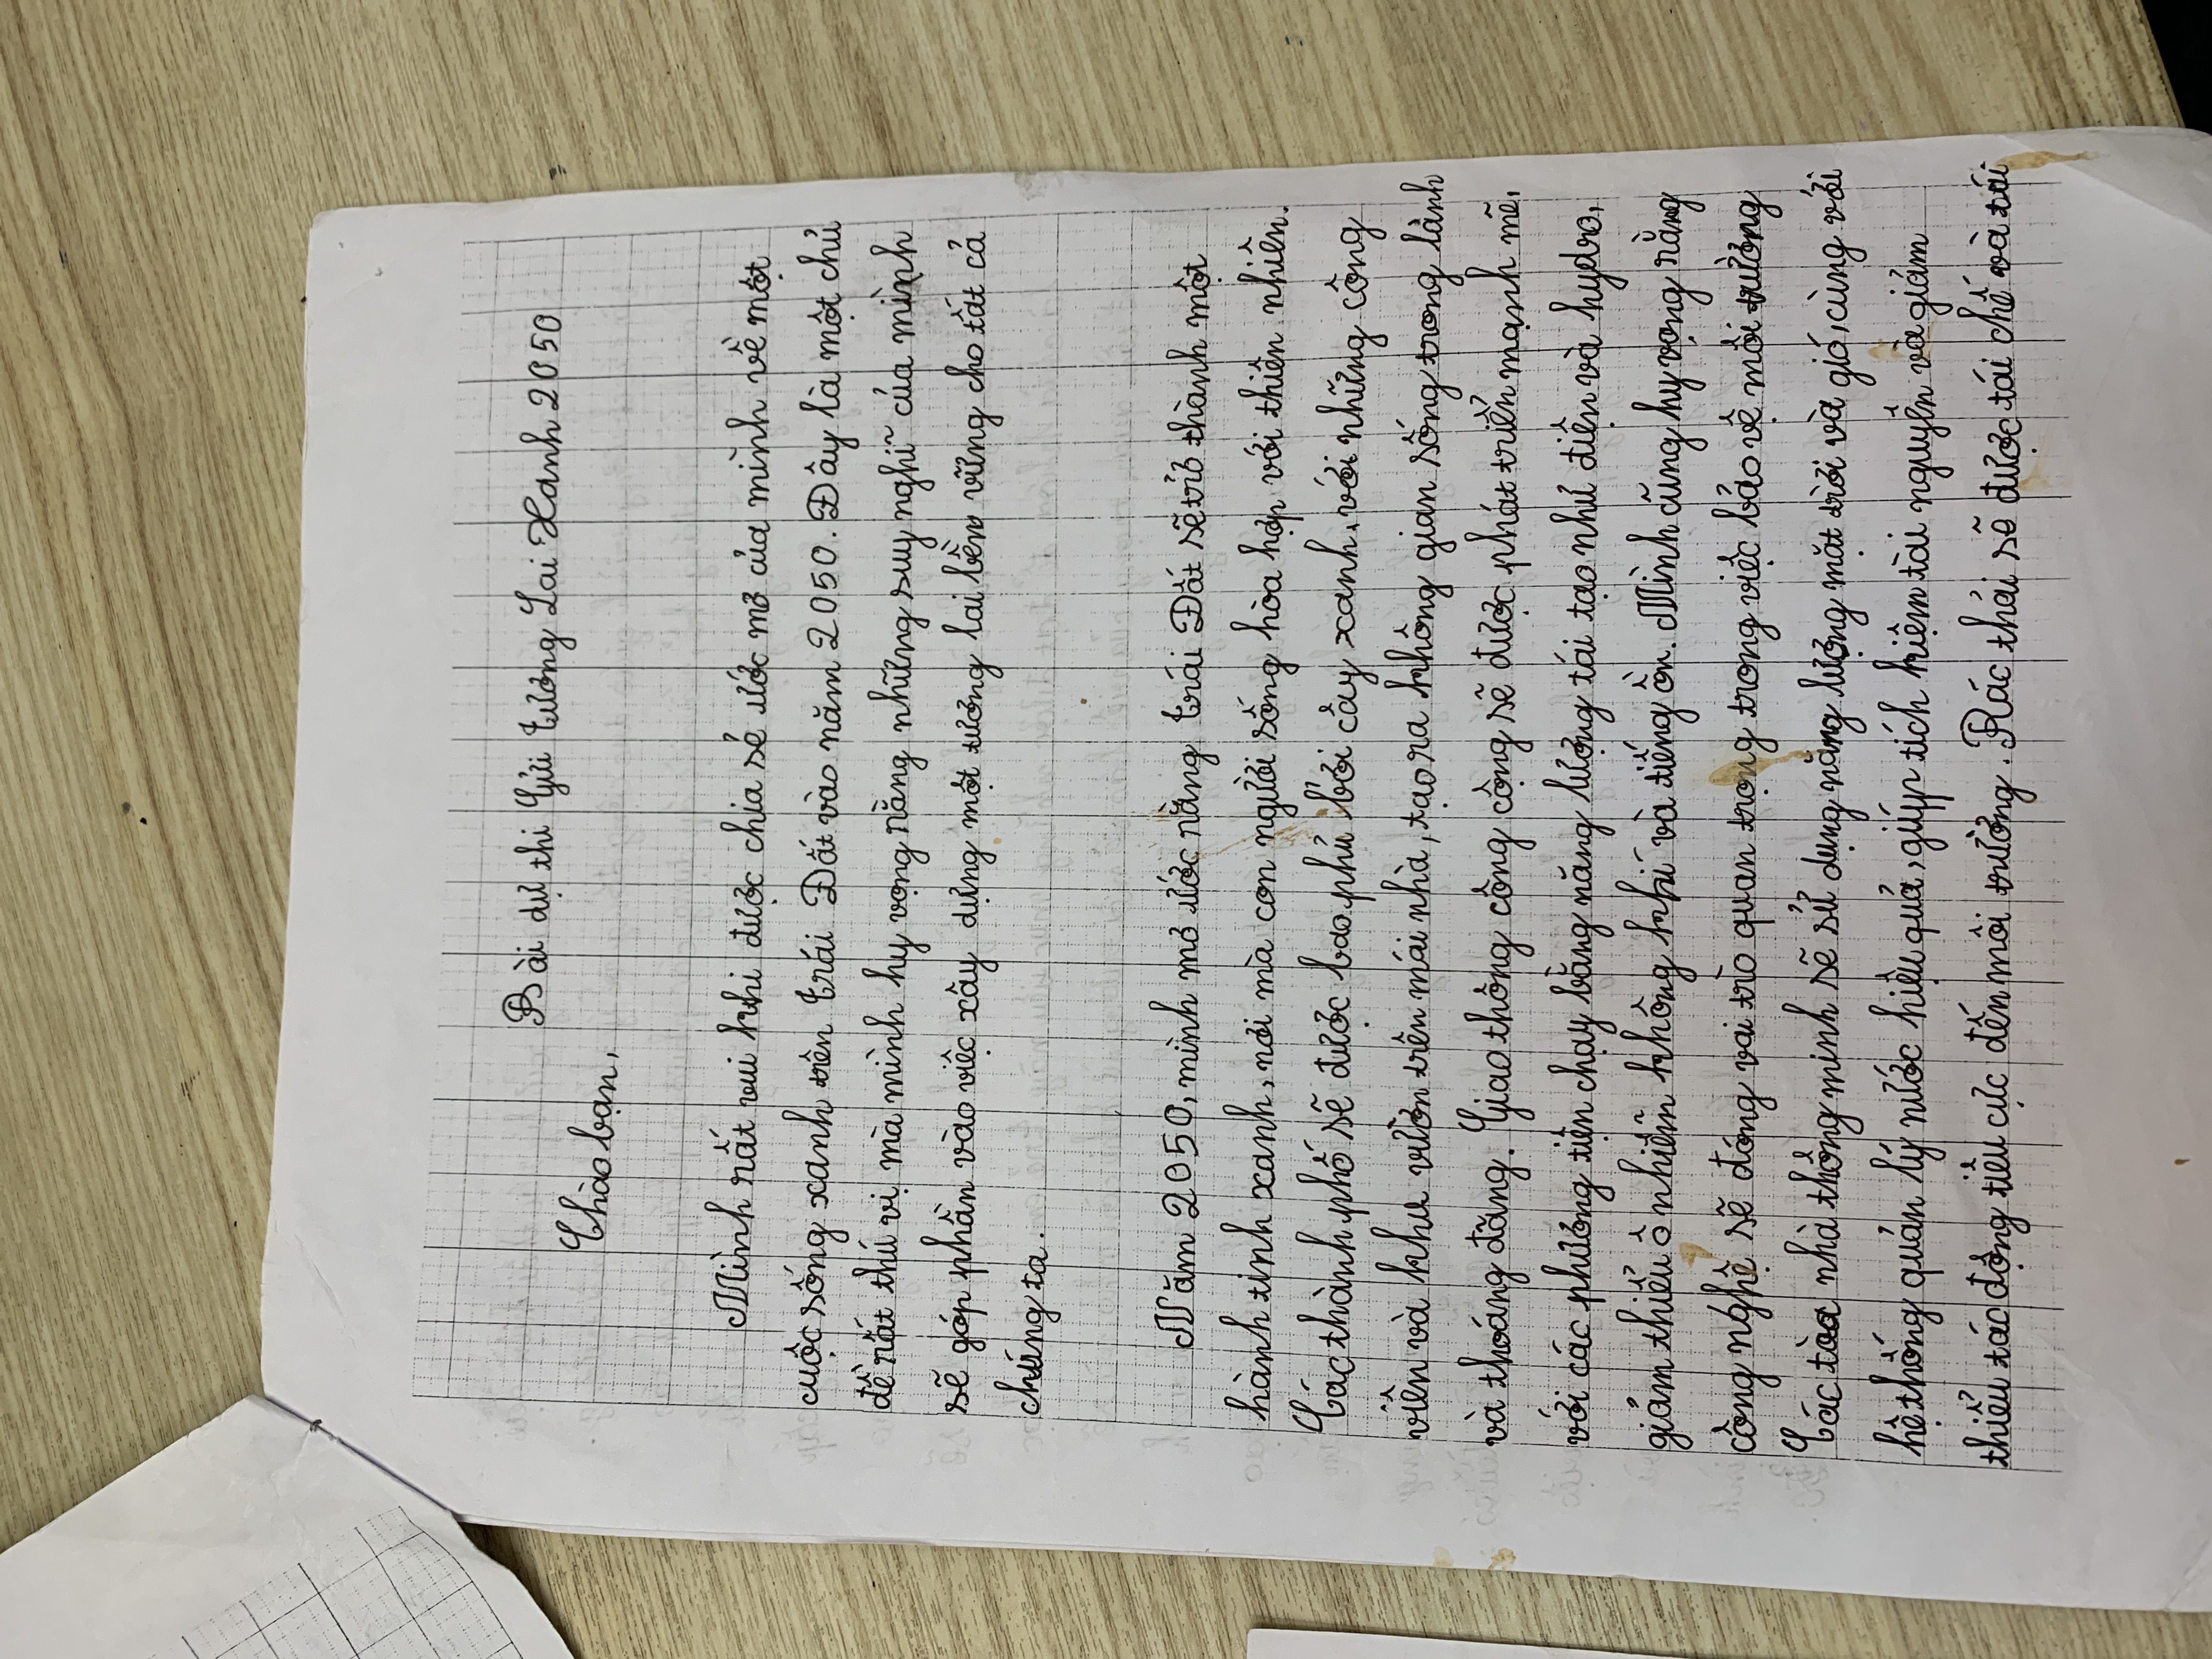 Bài dự thi Gửi Tương Lai Xanh 2050
Chào bạn,
Mình rất vui khi được chia sẻ ước mơ của mình về một
cuộc sống xanh trên Trái Đất vào năm 2050. Đây là một chủ
đề rất thú vị mà mình hy vọng rằng những suy nghĩ của mình
sẽ góp phần vào việc xây dựng một tương lai bền vững cho tất cả
chúng ta.
Năm 2050, mình mơ ước rằng Trái Đất sẽ trở thành một
hành tinh xanh, nơi mà con người sống hòa hợp với thiên nhiên.
Các thành phố sẽ được bao phủ bởi cây xanh, với những công
viên và khu vườn trên mái nhà, tạo ra không gian sống trong lành
và thoáng đãng. Giao thông công cộng sẽ được phát triển mạnh mẽ,
với các phương tiện chạy bằng năng lượng tái tạo như điện và hydro,
giảm thiểu ô nhiễm không khí và tiếng ồn. Mình cũng hy vọng rằng
công nghệ sẽ đóng vai trò quan trọng trong việc bảo vệ môi trường
Các tòa nhà thông minh sẽ sử dụng năng lượng mặt trời và gió, cùng với
hệ thống quản lý nước hiệu quả, giúp tích hiệm tài nguyên và giảm
thiểu tác động tiêu cực đến môi trường. Rác thải sẽ được tái chế và tái